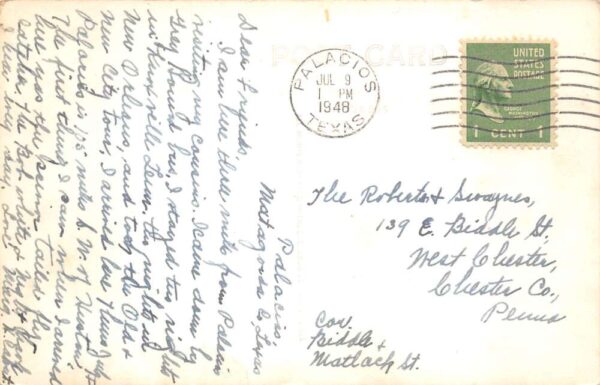 POST CARD
PALACIOS
JUL 9
1 PM
1948
TEXAS
UNITED
STATES
POSTAGE
GEORGE
WASHINGTON
1 CENT 1
Palacios,
Matagorda Co, Texas
Dear Friends,
I am here three miles from Palacios
visiting my cousins. I came down by
Grey Hound bus, I stayed two nights
in Knoxville Tenn. two nights in
New Orleans, and took the Old &
New City tour, I arrived here Thurs July
Palacios, 135 miles S. W. of Houston
The first thing I saw when I arrived
here was the scissor tailed fly
catcher, the
I hear every day, Love
The Roberts & Swaynes,
139 E. Biddle St.
West Chester,
Chester Co.,
Penna
Cor.
Biddle &
Matlack St.